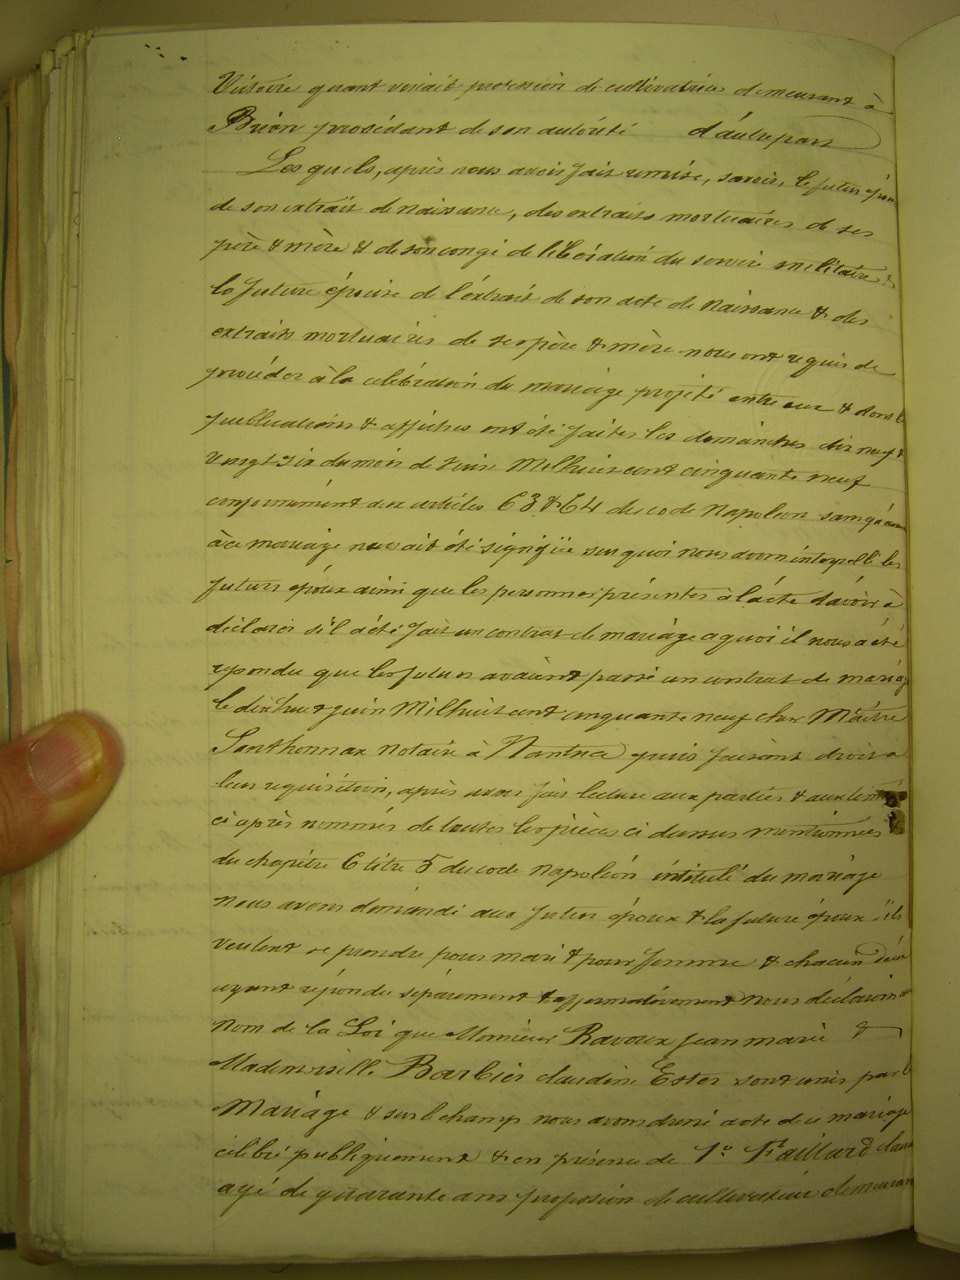 Victoire quant vivait profession de cultivatrice demeurant à
Brion procédant de son autorité d'autre part
Les quels, après nous avoir fait remise, savoir, le futur époux
de son extrait de naissance, des extraits mortuaires de ses
père & mère & de son congé de libération du service militaire
la future épouse de l'extrait de son acte de naissance & des
extraits mortuaires de ses père & mère nous ont requis de
procéder à la célébration du mariage projeté entre eux & dont l
publications & affiches ont été faites les dimanches dix neuf &
vingt six du mois de juin Milhuit cent cinquante neuf
conformément aux articles 63 & 64 du code Napoléon sans qu'
à ce mariage nous ait été signifié sur quoi nous avons interpellé les
futurs époux ainsi que les personnes présentes à l'acte d'avoir à
déclarer s'il a été fait un contrat de mariage a quoi il nous a été
repondu que les futurs avaient passé un contrat de mariag
le dix huit juin Milhuit cent cinquante neuf chez Maitre
Santhonnax Notaire à Nantua puis faisant droit a
leur requisition, après avoir fait lecture aux parties & aux tem
ci après nommés de toutes les pièces ci dessus mentionnées
du chapitre 6 titre 5 du code Napoléon intitulé du mariage
Nous avons demandé aux futur époux & la future épouse s'ils
veulent se prendre pour mari & pour femme & chacun d'eux
ayant répondu séparement & affirmativement nous déclarons a
nom de la Loi que Monsieur Ravoux jean marie &
Mademoiselle Barbier claudine Ester sont unis par l
Mariage & sur le champ nous avons dressé acte de ce mariage
célébré publiquement & en présence de 1.º Paillard clau
agé de quarante ans profession de cultivateur demeuran